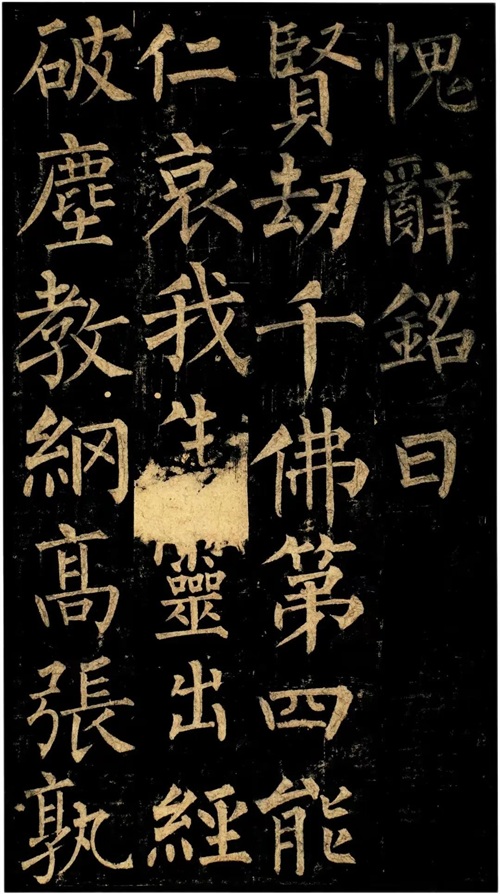 愧辭銘曰
賢劫千佛第四能
仁哀我生靈出經
破塵教綱高張孰